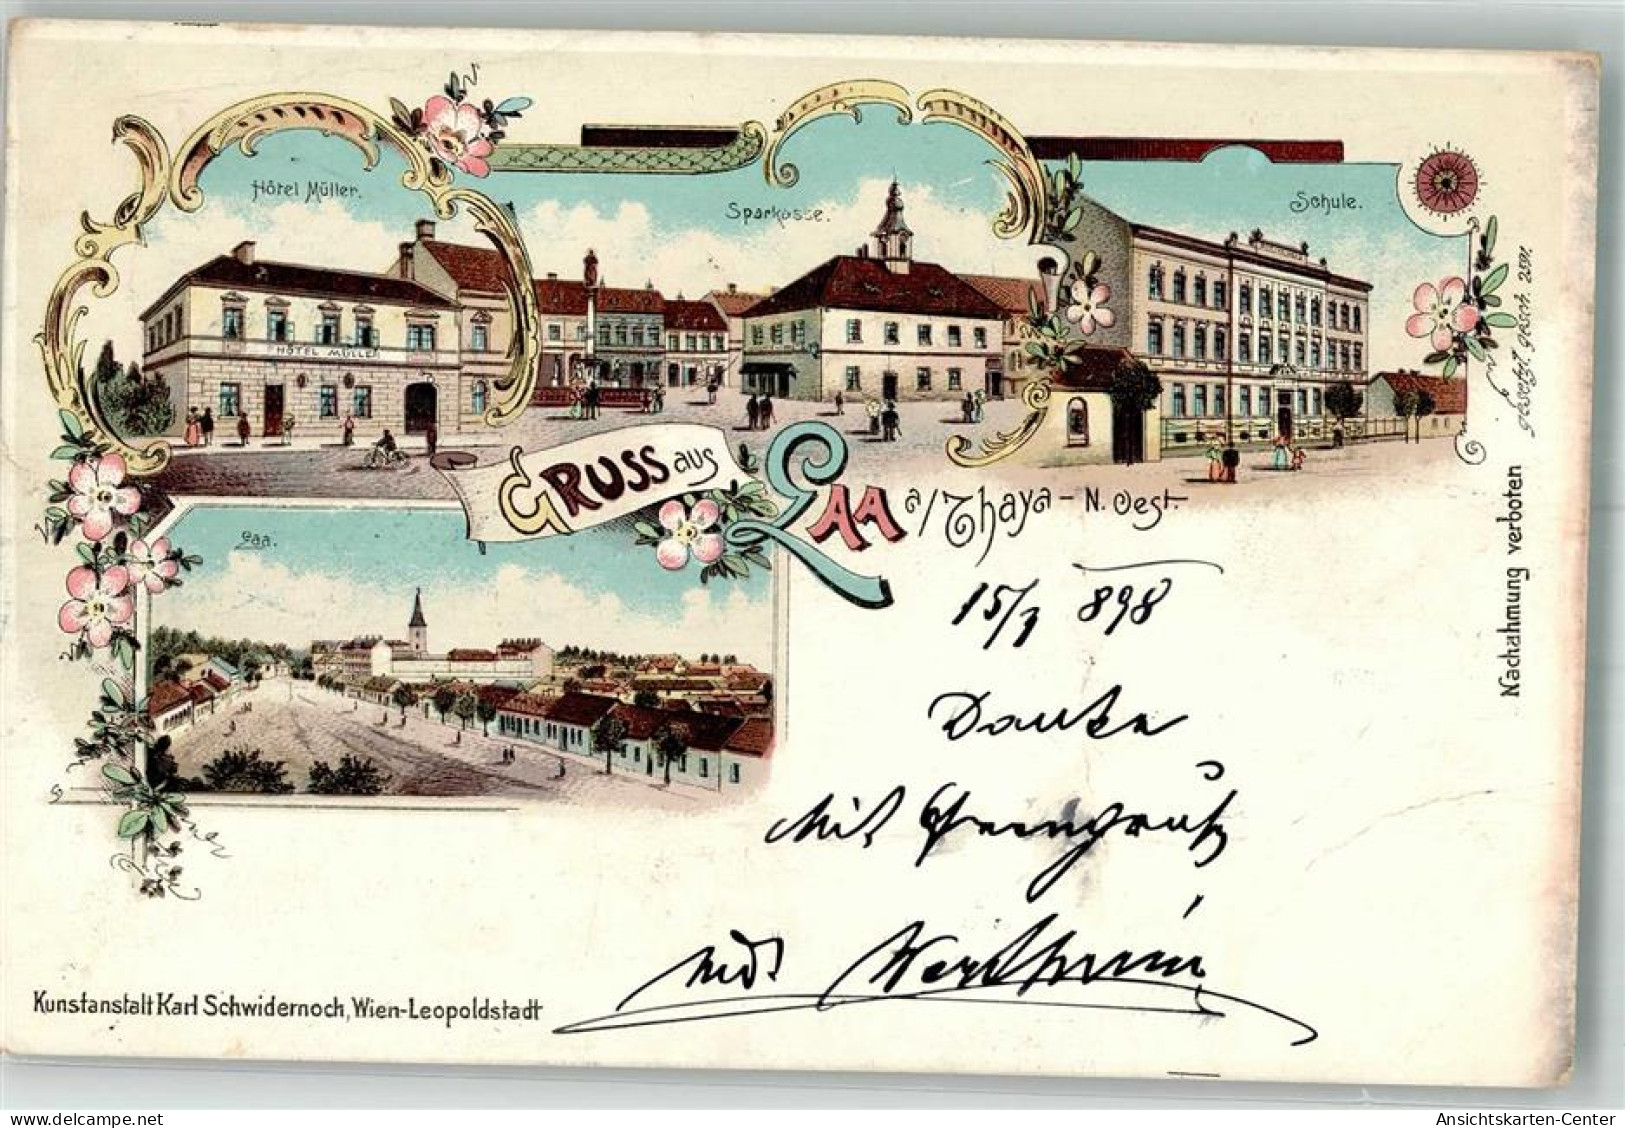 Hôtel Müller.
Sparkasse.
Schule.
HÔTEL MÜLLER
GRUSS aus
LAA a/Thaya - N. Oest.
Laa.
gesetzl. gesch. 2591.
Nachahmung verboten
15/7 898
Danke
mit
Kunstanstalt Karl Schwidernoch, Wien-Leopoldstadt
www.delcampe.net
Ansichtskarten-Center